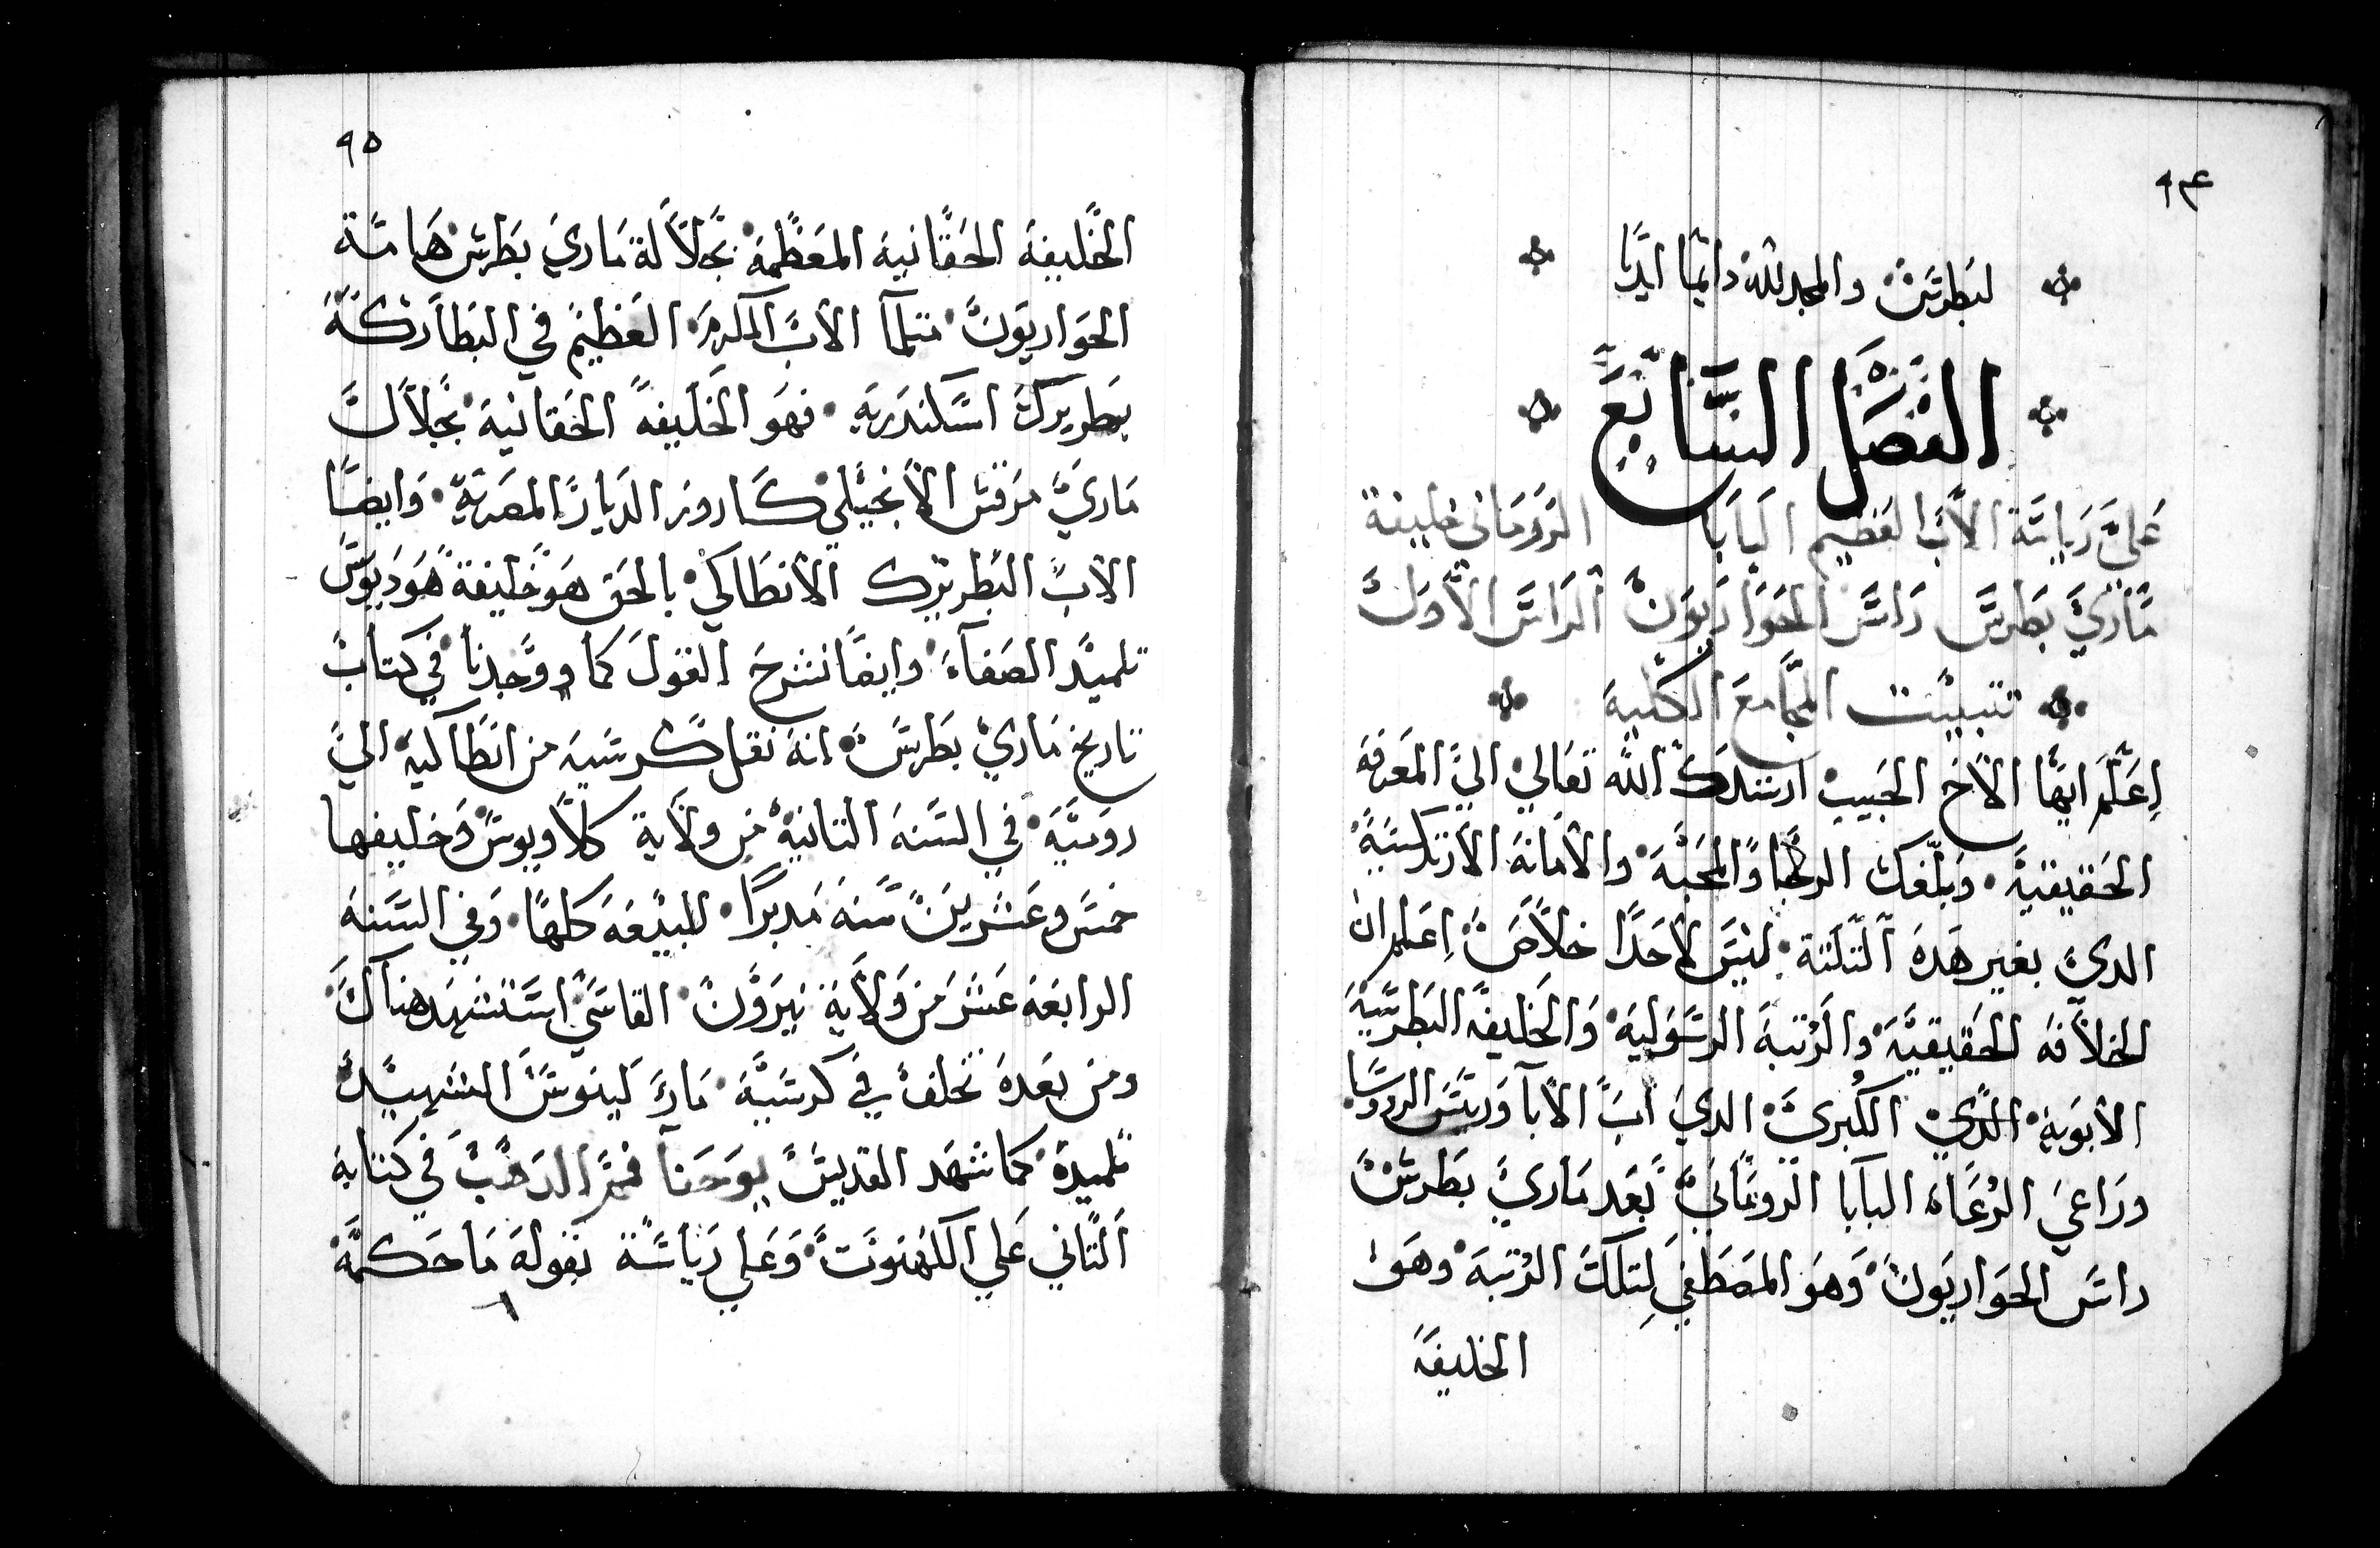 ٩٤
لبطرس والمجد لله دايما ابديا
الفصل السابع
علي رياسة الاب العظيم البابا الروماني خليفة
ماري بطرس راس الحواريون الراس الاول
تتبيت المجامع الكليه
اعلم ايها الاخ الحبيب ارشدك الله تعالي الي المعرفه
الحقيقية وبلغك الرجا والمحبة والامانة الارتدكسية
الدي بغير هده التلتة ليس لاحدا خلاص اعلم ان
الخلافه الحقيقية والرتبة الرسولية والخليفة البطرسية
الابوية الدي الكبري الدي اب الابا وريس الروسا
وراعي الرعاه البابا الروماني بعد ماري بطرس
راس الحواريون وهو المصطفي لتلك الرتبة وهو
الخليفة
٩٥
الخليفة الحقانية المعظمة بجلالة ماري بطرس هامة
الحواريون متلما الاب المكرم العظيم في البطاركة
بطريرك اسكندرية فهو الخليفة الحقانية بجلالت
ماري مرقس الانجيلي كاروز الديار المصرية وايضا
الاب البطريرك الانطاكي بالحق هو خليفة هوديوس
تلميد الصفاء وايضا نشرح القول كما ووجدنا في كتاب
تاريخ ماري بطرس انه نقل كرسيه من انطاكيه الي
رومية في السنه التانية من ولاية كلاوديوس وخليفها
خمس وعشرين سنه مدبرا للبيعة كلها وفي السنه
الرابعة عشر من ولاية نيرون القاسي استشهد هناك
ومن بعده تخلف في كرسية مار لينوس الشهيد
تلميده كما شهد القديس يوحنا فم الدهب في كتابه
التاني علي الكهنوت وعلي رياسة بقوله ما حكمة